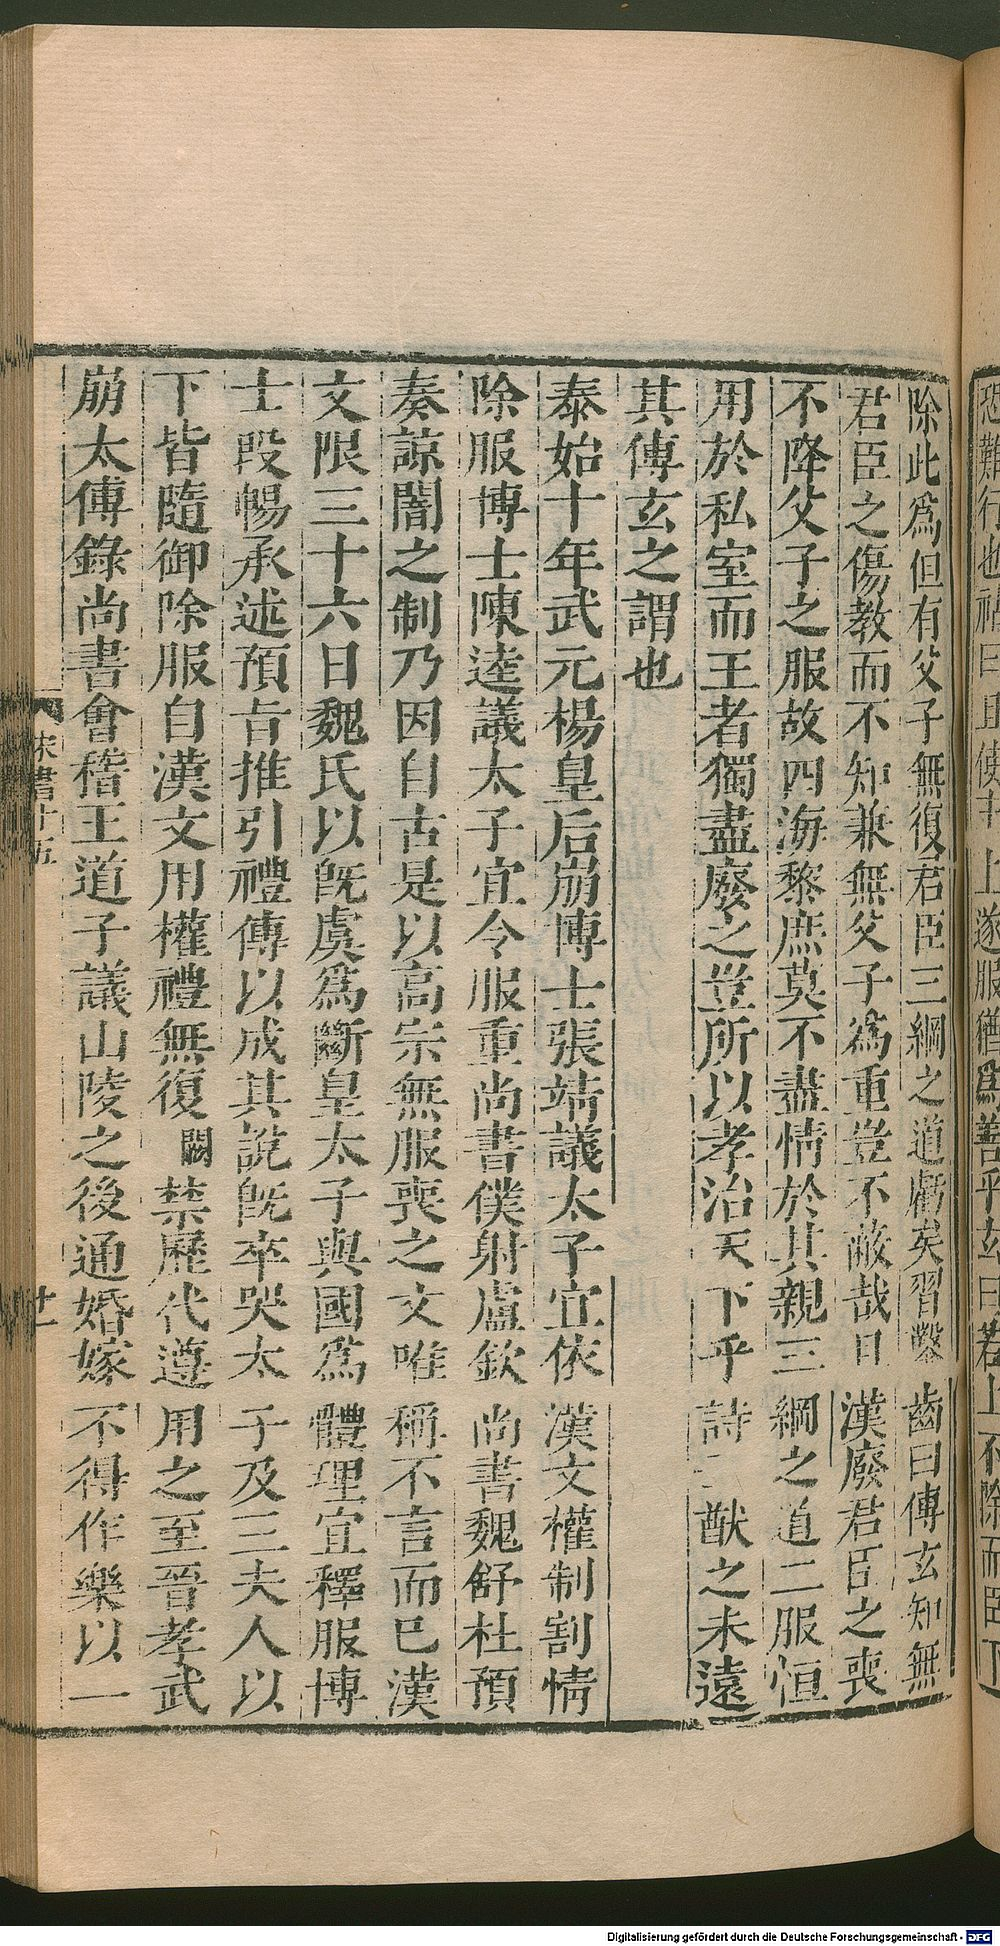 恐難行也祜曰且使主上遂服猶爲善乎玄曰若上不除而臣下
除此爲但有父子無復君臣三綱之道虧矣習鑿齒曰傳玄知無
君臣之傷教而不知兼無父子爲重豈不蔽哉且漢廢君臣之喪
不降父子之服故四海黎庶莫不盡情於其親三綱之道二服恒
用於私室而王者獨盡廢之豈所以孝治天下乎詩云猷之未遠
其傳玄之謂也
泰始十年武元楊皇后崩博士張靖議太子宜依漢文權制割情
除服博士陳逵議太子宜令服重尚書僕射盧欽尚書魏舒杜預
奏諒闇之制乃因自古是以高宗無服喪之文唯稱不言而已漢
文限三十六日魏氏以既虞爲斷皇太子與國爲體理宜釋服博
士段暢承述預旨推引禮傳以成其說既卒哭太子及三夫人以
下皆隨御除服自漢文用權禮無復闕禁歷代遵用之至晉孝武
崩太傅錄尚書會稽王道子議山陵之後通婚嫁不得作樂以一
宋書十五
廿一
Digitalisierung gefördert durch die Deutsche Forschungsgemeinschaft - DFG